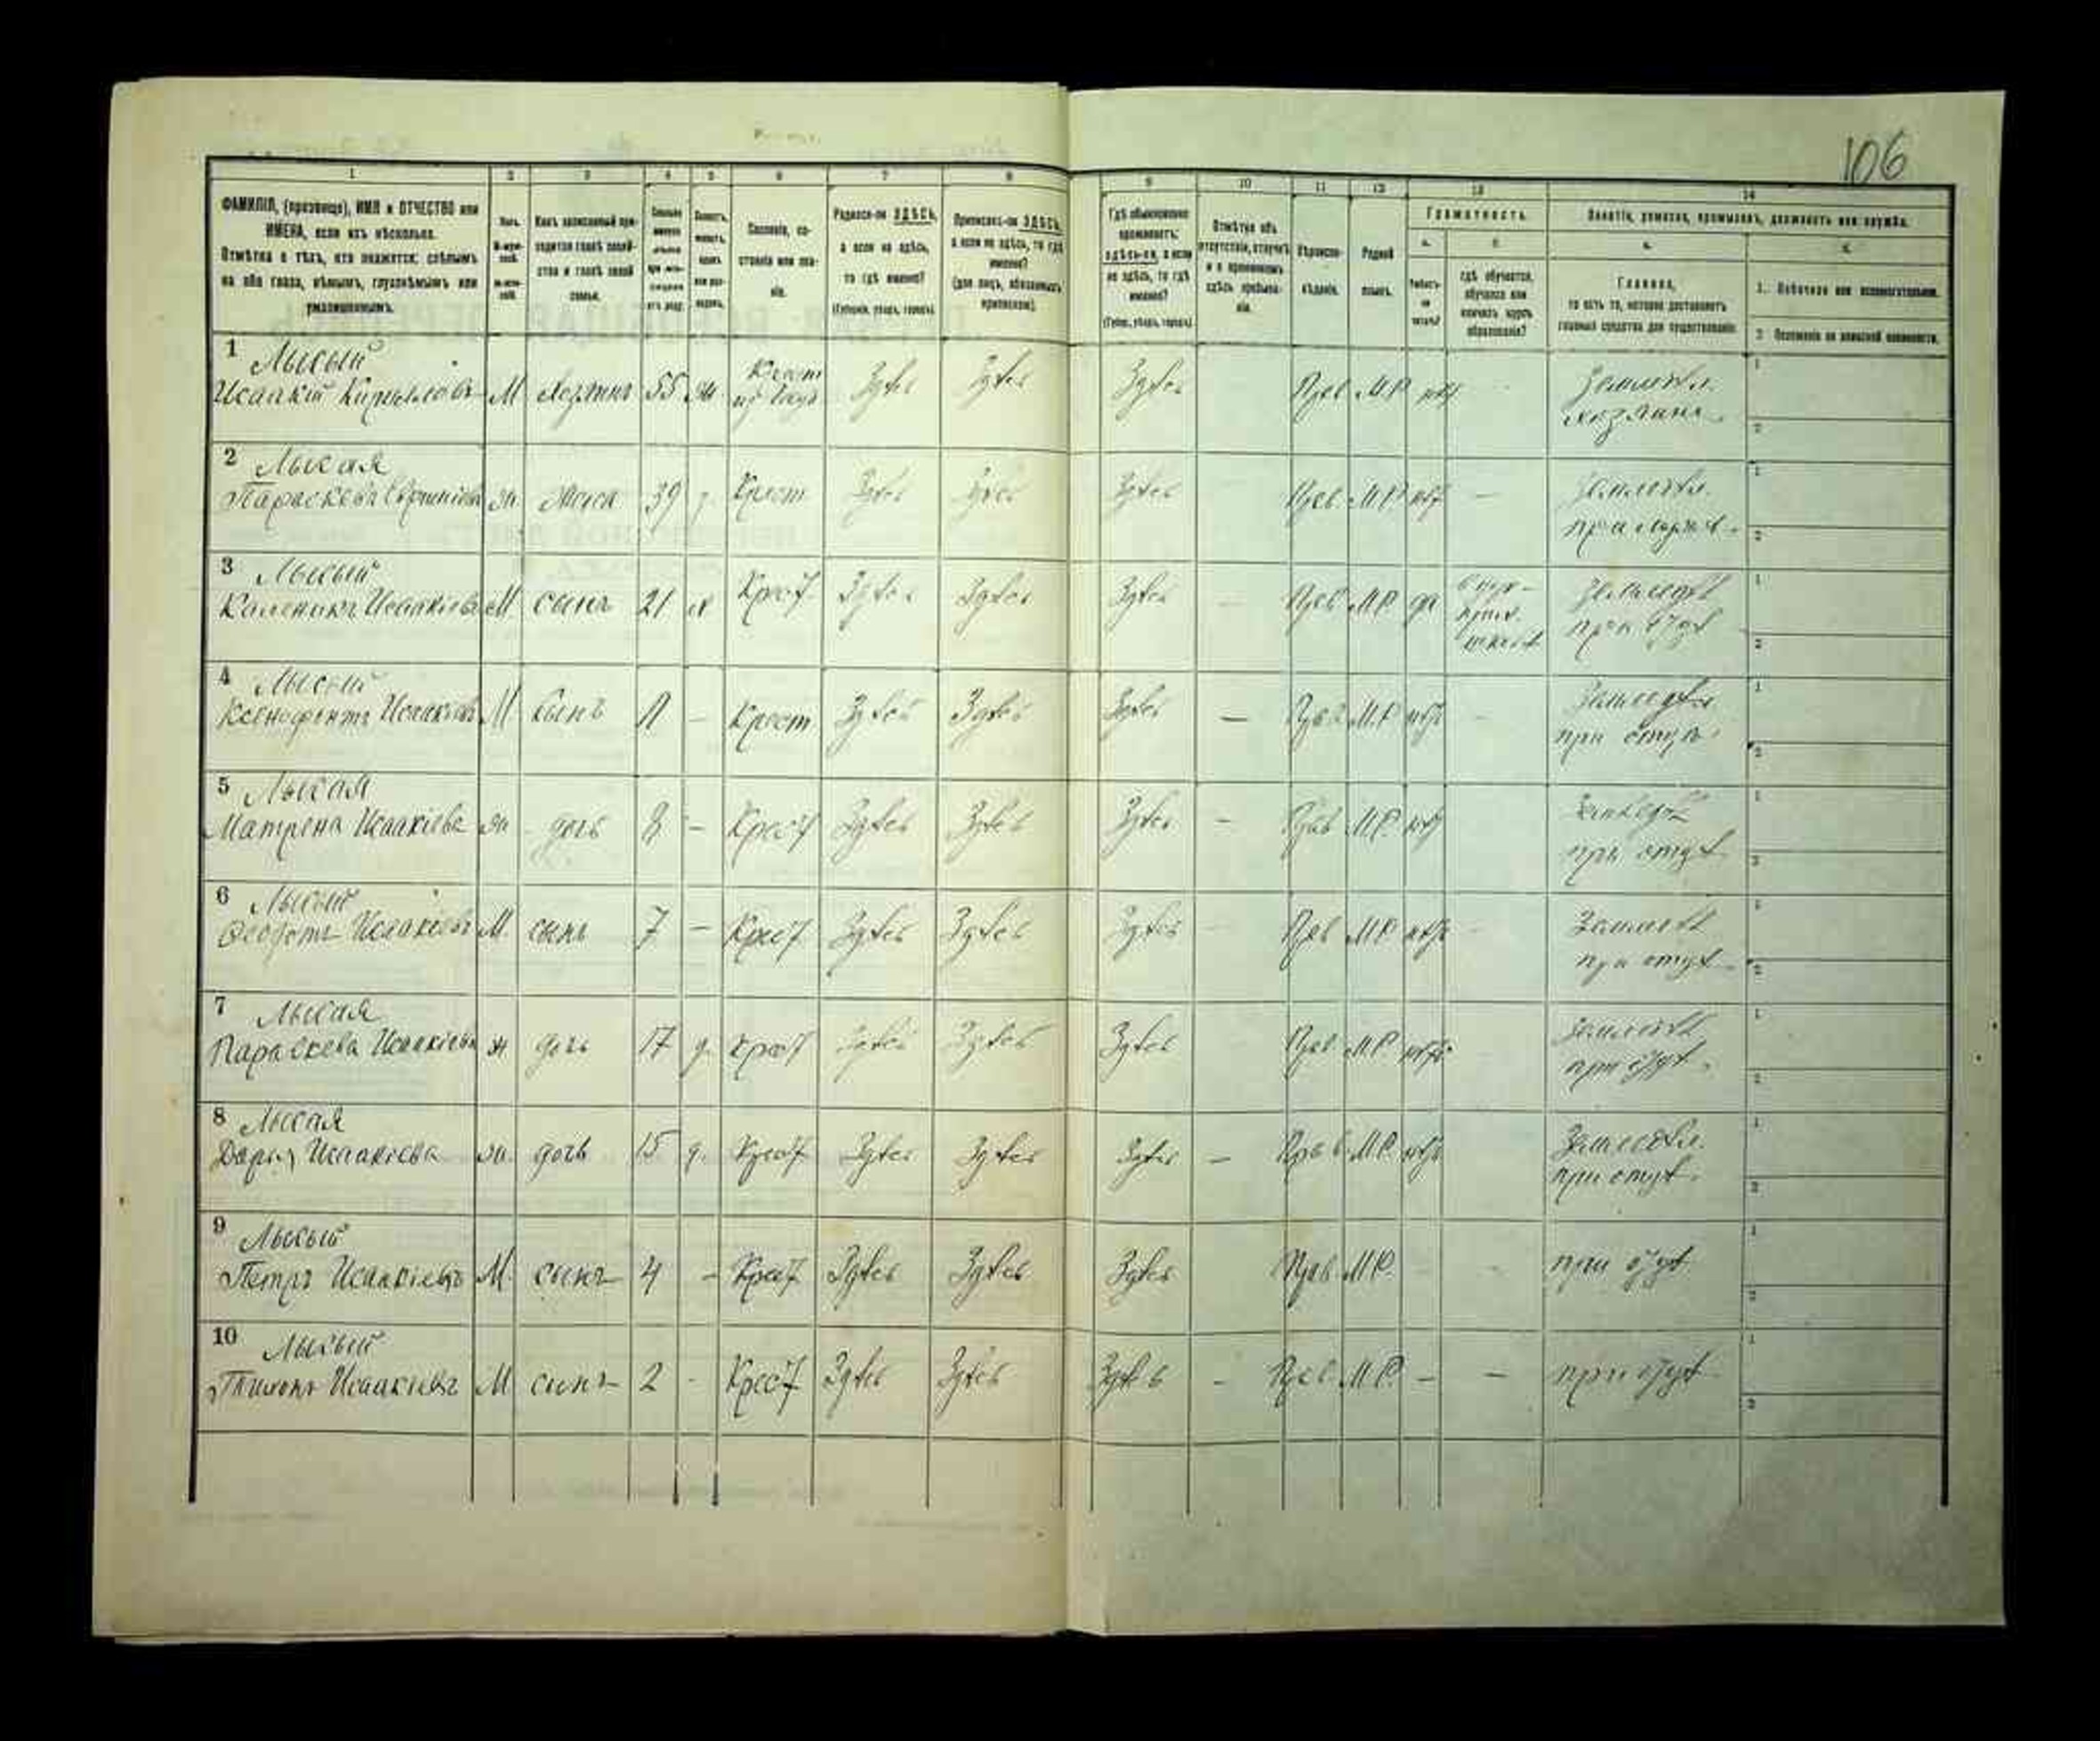 106
1 2 3 4 5 6 7 8 9 10 11 12 13 14
ФАМИЛІЯ, (прозвище), ИМЯ и ОТЧЕСТВО или
ИМЕНА, если ихъ нѣсколько.
Отмѣтка о тѣхъ, кто окажется: слѣпымъ
на оба глаза, нѣмымъ, глухонѣмымъ или
умалишеннымъ.
Полъ.
Какъ записанный при-
ходится главѣ хозяй-
ства и главѣ своей
семьи.
Сословіе, со-
стояніе или зва-
ніе.
Родился-ли ЗДѢСЬ,
а если не здѣсь,
то гдѣ именно?
(Губернія, уѣздъ, городъ).
Приписанъ-ли ЗДѢСЬ,
а если не здѣсь, то гдѣ
именно?
(для лицъ, обязанныхъ
припискою).
Гдѣ обыкновенно
проживаетъ:
здѣсь-ли, а если
не здѣсь, то гдѣ
именно?
(Губер., уѣздъ, городъ).
Отмѣтка объ
отсутствіи, отлучкѣ
и о временномъ
здѣсь пребыва-
ніи.
Вѣроиспо-
вѣданіе.
Родной
языкъ.
Грамотность.
а. б.
гдѣ обучается,
обучался или
кончилъ курсъ
образованія?
Занятіе, ремесло, промыселъ, должность или служба.
Главное,
то есть то, которое доставляетъ
главныя средства для существованія.
1. Побочное или вспомогательное.
2. Положеніе по воинской повинности.
1 Лысый
Исаакій Кирилловъ М хозяинъ 55 ж Крест Здѣсь Здѣсь Здѣсь Прав М Р нѣт Земледѣл. хозяинъ
2 Лысая
Параскева ж. жена 39 Крест Здѣсь Здѣсь Здѣсь Прав М Р нѣт — Земледѣл.
3 Лысый
Каленикъ Исаакіевъ М. сынъ 21 х Крест Здѣсь Здѣсь Здѣсь — Прав М Р да Земледѣл при отцѣ
4 Лысый
Ксенофонтъ Исаакіевъ М сынъ — Крест Здѣсь Здѣсь Здѣсь — Прав М.Р нѣтъ Земледѣл при отцѣ
5 Лысая
Матрена Исаакіева ж дочь 8 — Крест Здѣсь Здѣсь Здѣсь — Прав М Р. нѣт Земледѣл при отцѣ
6 Лысый
Ѳеодотъ Исаакіевъ М. сынъ 7 — Крест Здѣсь Здѣсь Здѣсь Прав М Р нѣтъ Земледѣл при отцѣ
7 Лысая
Параскева Исаакіева ж дочь 17 д. Крест Здѣсь Здѣсь Здѣсь Прав М Р нѣтъ Земледѣл при отцѣ.
8 Лысая
Дарья Исаакіева ж. дочь 15 д. Крест Здѣсь Здѣсь Здѣсь — Прав М Р. нѣтъ Земледѣл. при отцѣ.
9 Лысый
Петръ Исаакіевъ М. сынъ 4 — Крест Здѣсь Здѣсь Здѣсь Прав М Р. при отцѣ
10 Лысый
Тихонъ Исаакіевъ М сынъ 2 - Крест Здѣсь Здѣсь Здѣсь — Прав М Р. — — при отцѣ